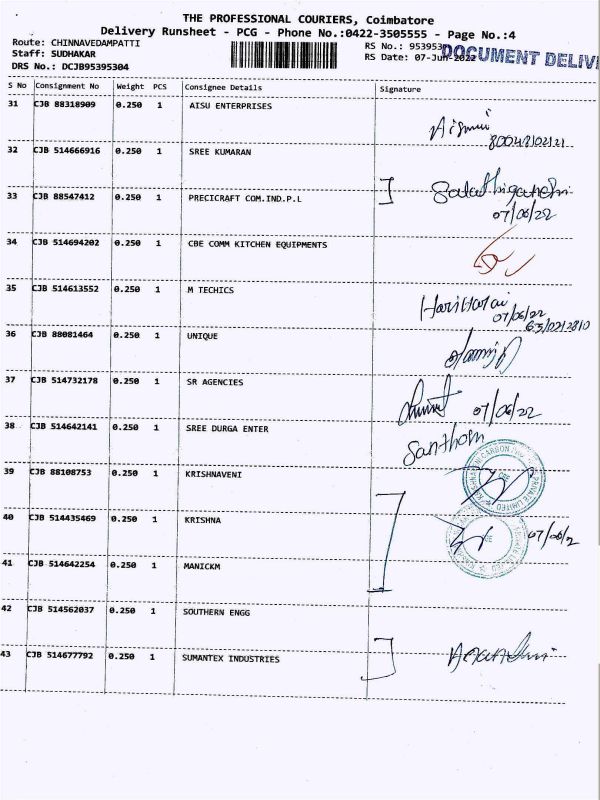 THE PROFESSIONAL COURIERS, Coimbatore
Delivery Runsheet - PCG - Phone No.:0422-3505555 - Page No.:4
Route: CHINNAVEDAMPATTI
Staff: SUDHAKAR
DRS No.: DCJB95395304
RS No.: 953953
RS Date: 07-Jun-2022
DOCUMENT DELIV
S No Consignment No Weight PCS Consignee Details Signature
31 CJB 88318909 0.250 1 AISU ENTERPRISES
32 CJB 514666916 0.250 1 SREE KUMARAN
33 CJB 88547412 0.250 1 PRECICRAFT COM.IND.P.L
07/06/22
34 CJB 514694202 0.250 1 CBE COMM KITCHEN EQUIPMENTS
35 CJB 514613552 0.250 1 M TECHICS
07/06/22
36 CJB 88081464 0.250 1 UNIQUE
37 CJB 514732178 0.250 1 SR AGENCIES
07/06/22
38 CJB 514642141 0.250 1 SREE DURGA ENTER
Santhosh
39 CJB 88108753 0.250 1 KRISHNAVENI
40 CJB 514435469 0.250 1 KRISHNA
07/06/2
41 CJB 514642254 0.250 1 MANICKM
42 CJB 514562037 0.250 1 SOUTHERN ENGG
43 CJB 514677792 0.250 1 SUMANTEX INDUSTRIES